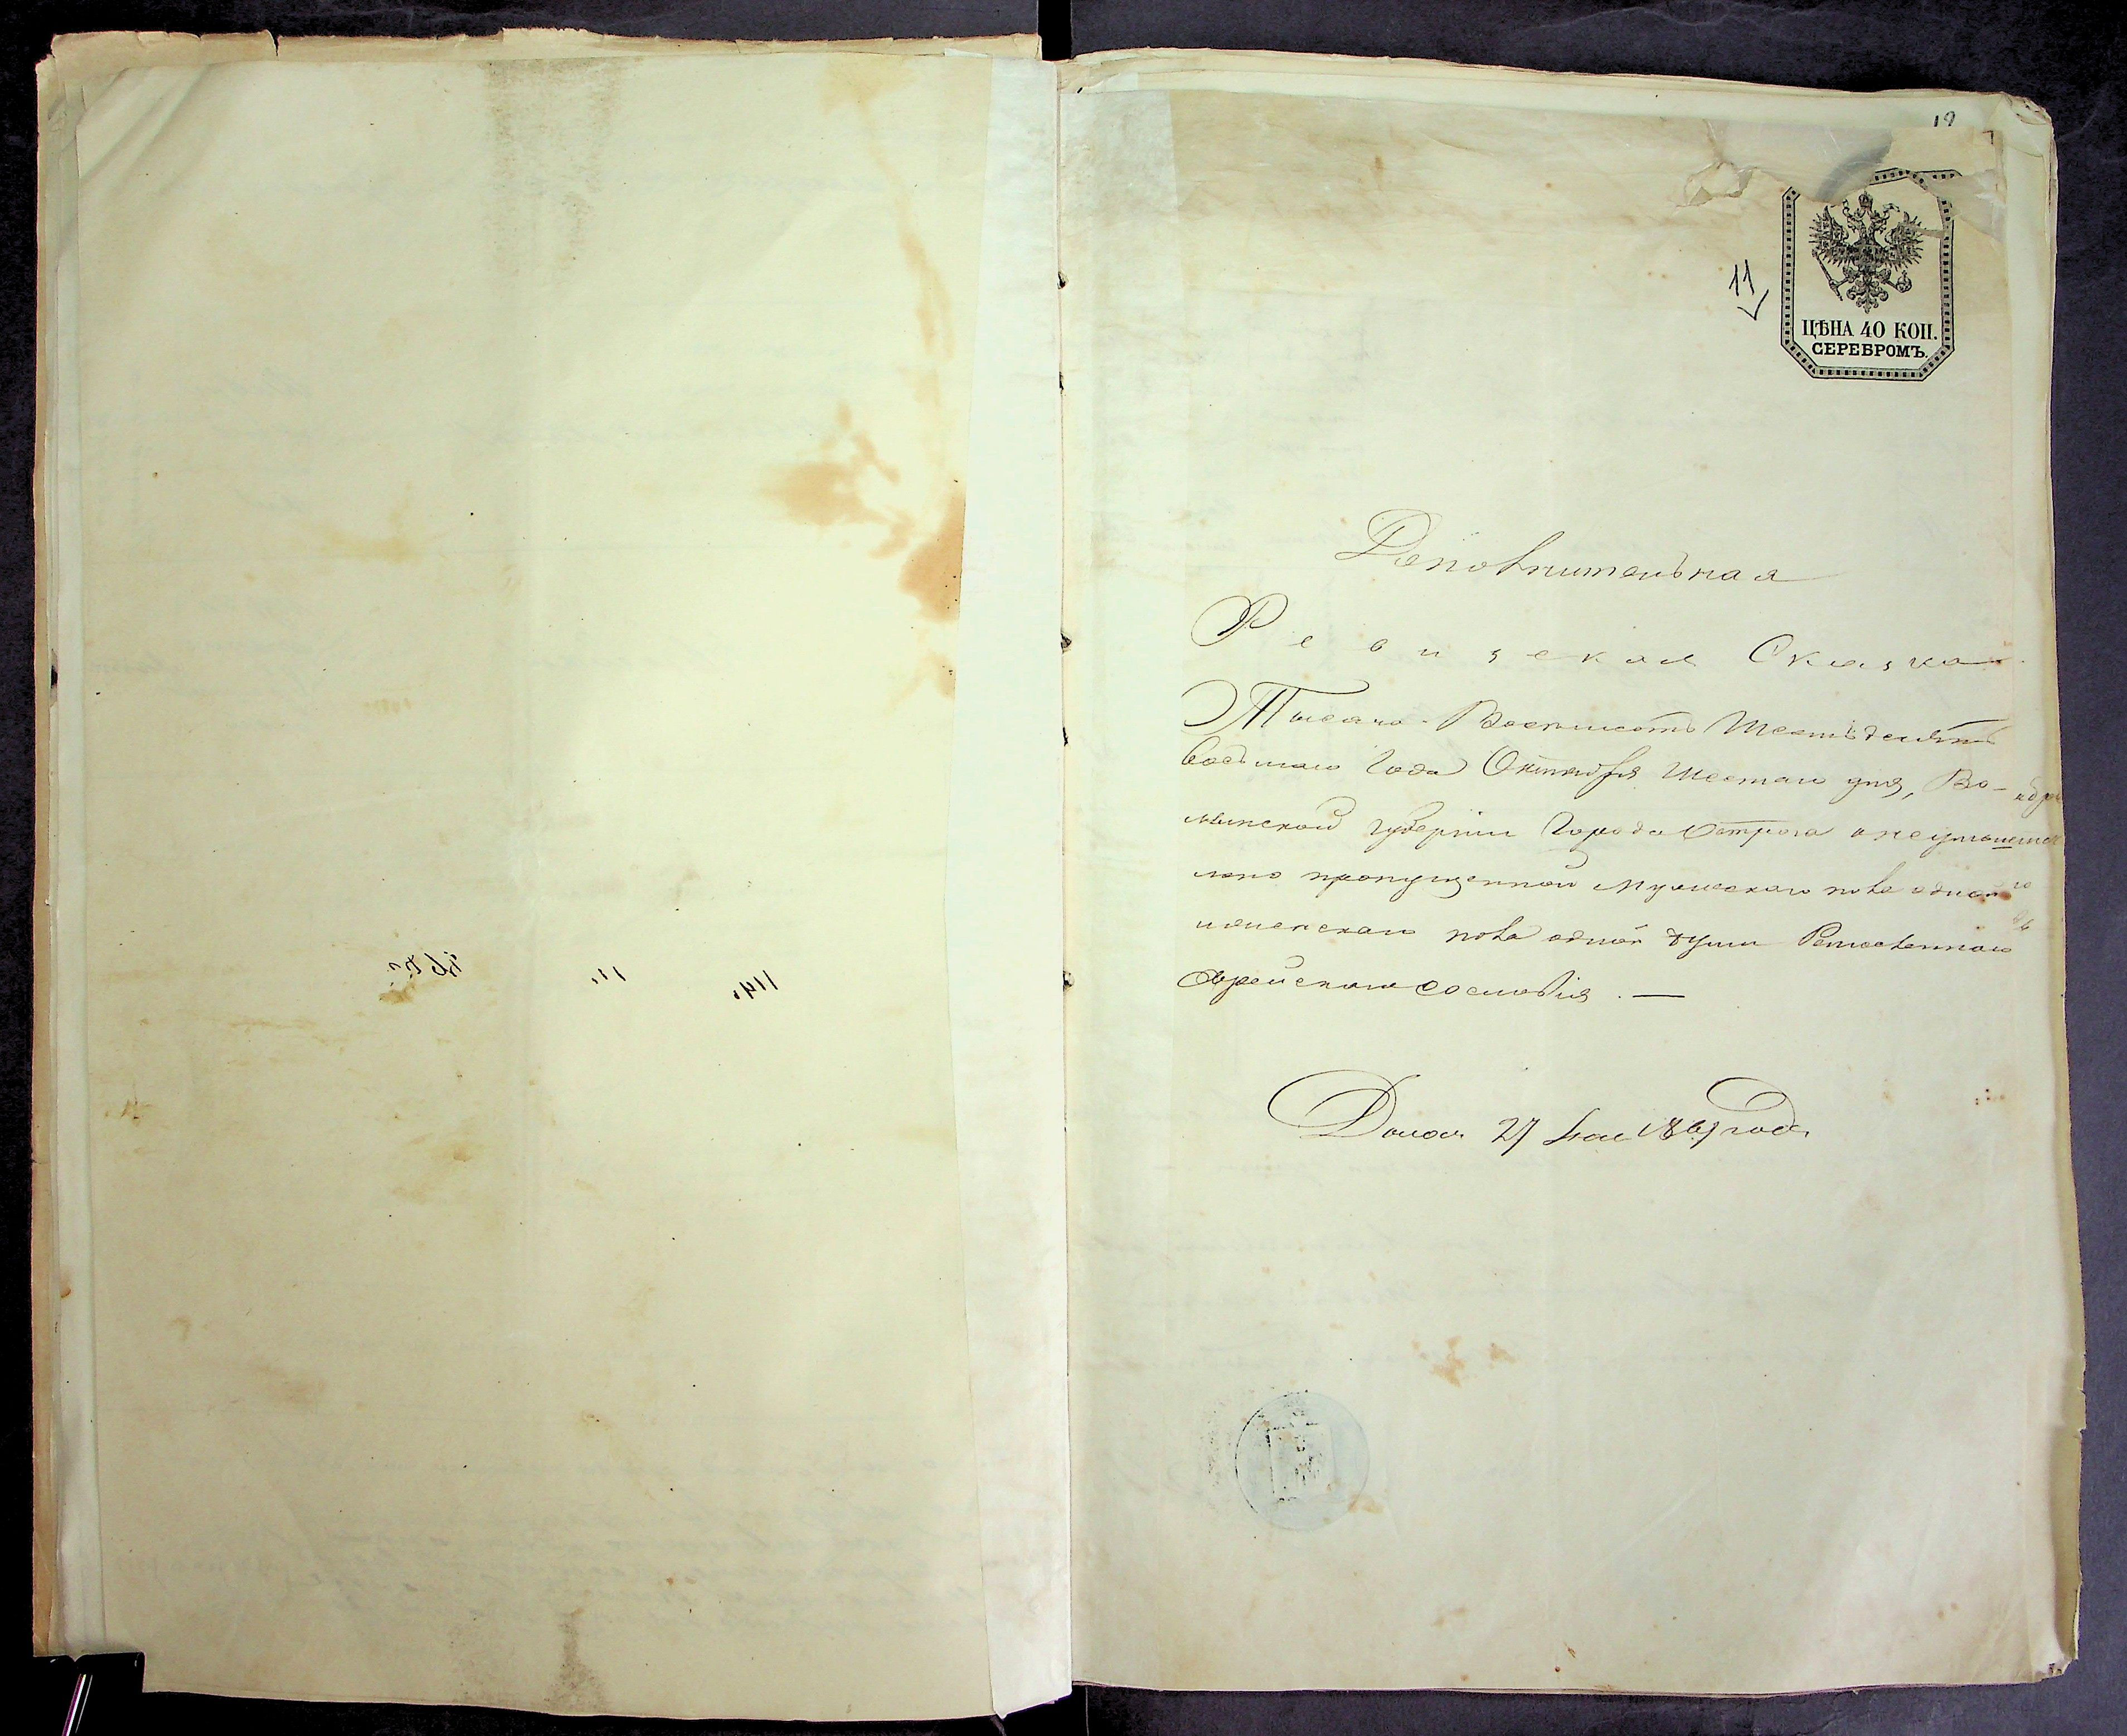 12
11
ЦѢНА 40 КОП.
СЕРЕБРОМЪ.
Дополнительная
Ревизская Сказка
Тысяча Восемьсотъ Шестьдесятъ
Седьмаго Года Октября Шестаго дня, Во-
лынской губерніи Города Острога о неумышлен
но пропущенной мужескаго пола одной
и женскаго пола одной души
Еврейскаго сословія. —
27 мая 1867 года
114.
11.